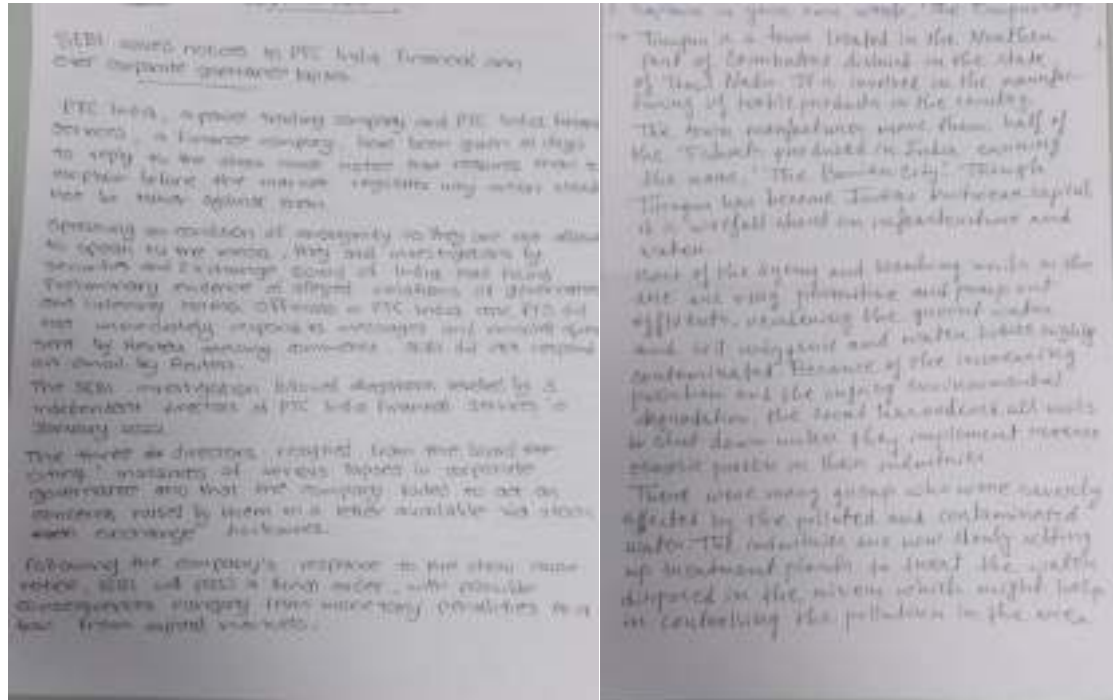 SEBI issued notices to PTC India Financial and
over corporate governance lapses.
PTC India, a power trading company and PTC India Financial
Services, a finance company, have been given 21 days
to reply to the show cause notice that requires them to
explain before the market regulator why action should
not be taken against them.
Speaking on condition of anonymity as they are not allowed
to speak to the media, they said investigations by
Securities and Exchange Board of India had found
Preliminary evidence of alleged violations of governance
and PTC India and PFS did
not immediately respond to messages and
sent by Reuters seeking comments. SEBI did not respond
an email by Reuters.
The SEBI investigation followed by 3
independent directors of PTC India Financial Services in
January 2022.
The three directors resigned from the board
citing instances of serious lapses in corporate
governance and that the company failed to act on
concerns raised by them in a letter available via stock
exchange
Following the company's response to the show cause
notice, SEBI will pass a final order, with possible
consequences ranging from monetary penalties to a
ban from capital markets.
in your own words, The
→ Tirupur is a town located in the Northern
part of Coimbatore district in the state
of Tamil Nadu. It is involved in the manufac-
turing of textile products in the country.
The town manufactures more than half of
the produced in India earning
the name, "The Banian City". Though
Tirupur has become India's knitwear capital
it is a on infrastructure and
water.
Most of the dyeing and bleaching units in the
are are using primitive and pump out
effluents, the ground water
and soil and water bodies highly
contaminated. Because of the increasing
pollution and the environmental
degradation, the court all units
to shut down unless they implement reverse
in their industries
There were many who were severely
affected by the polluted and contaminated
water. The industries are now slowly setting
up treatment plants to treat the water
disposed in the rivers which might help
in controlling the pollution in the area.